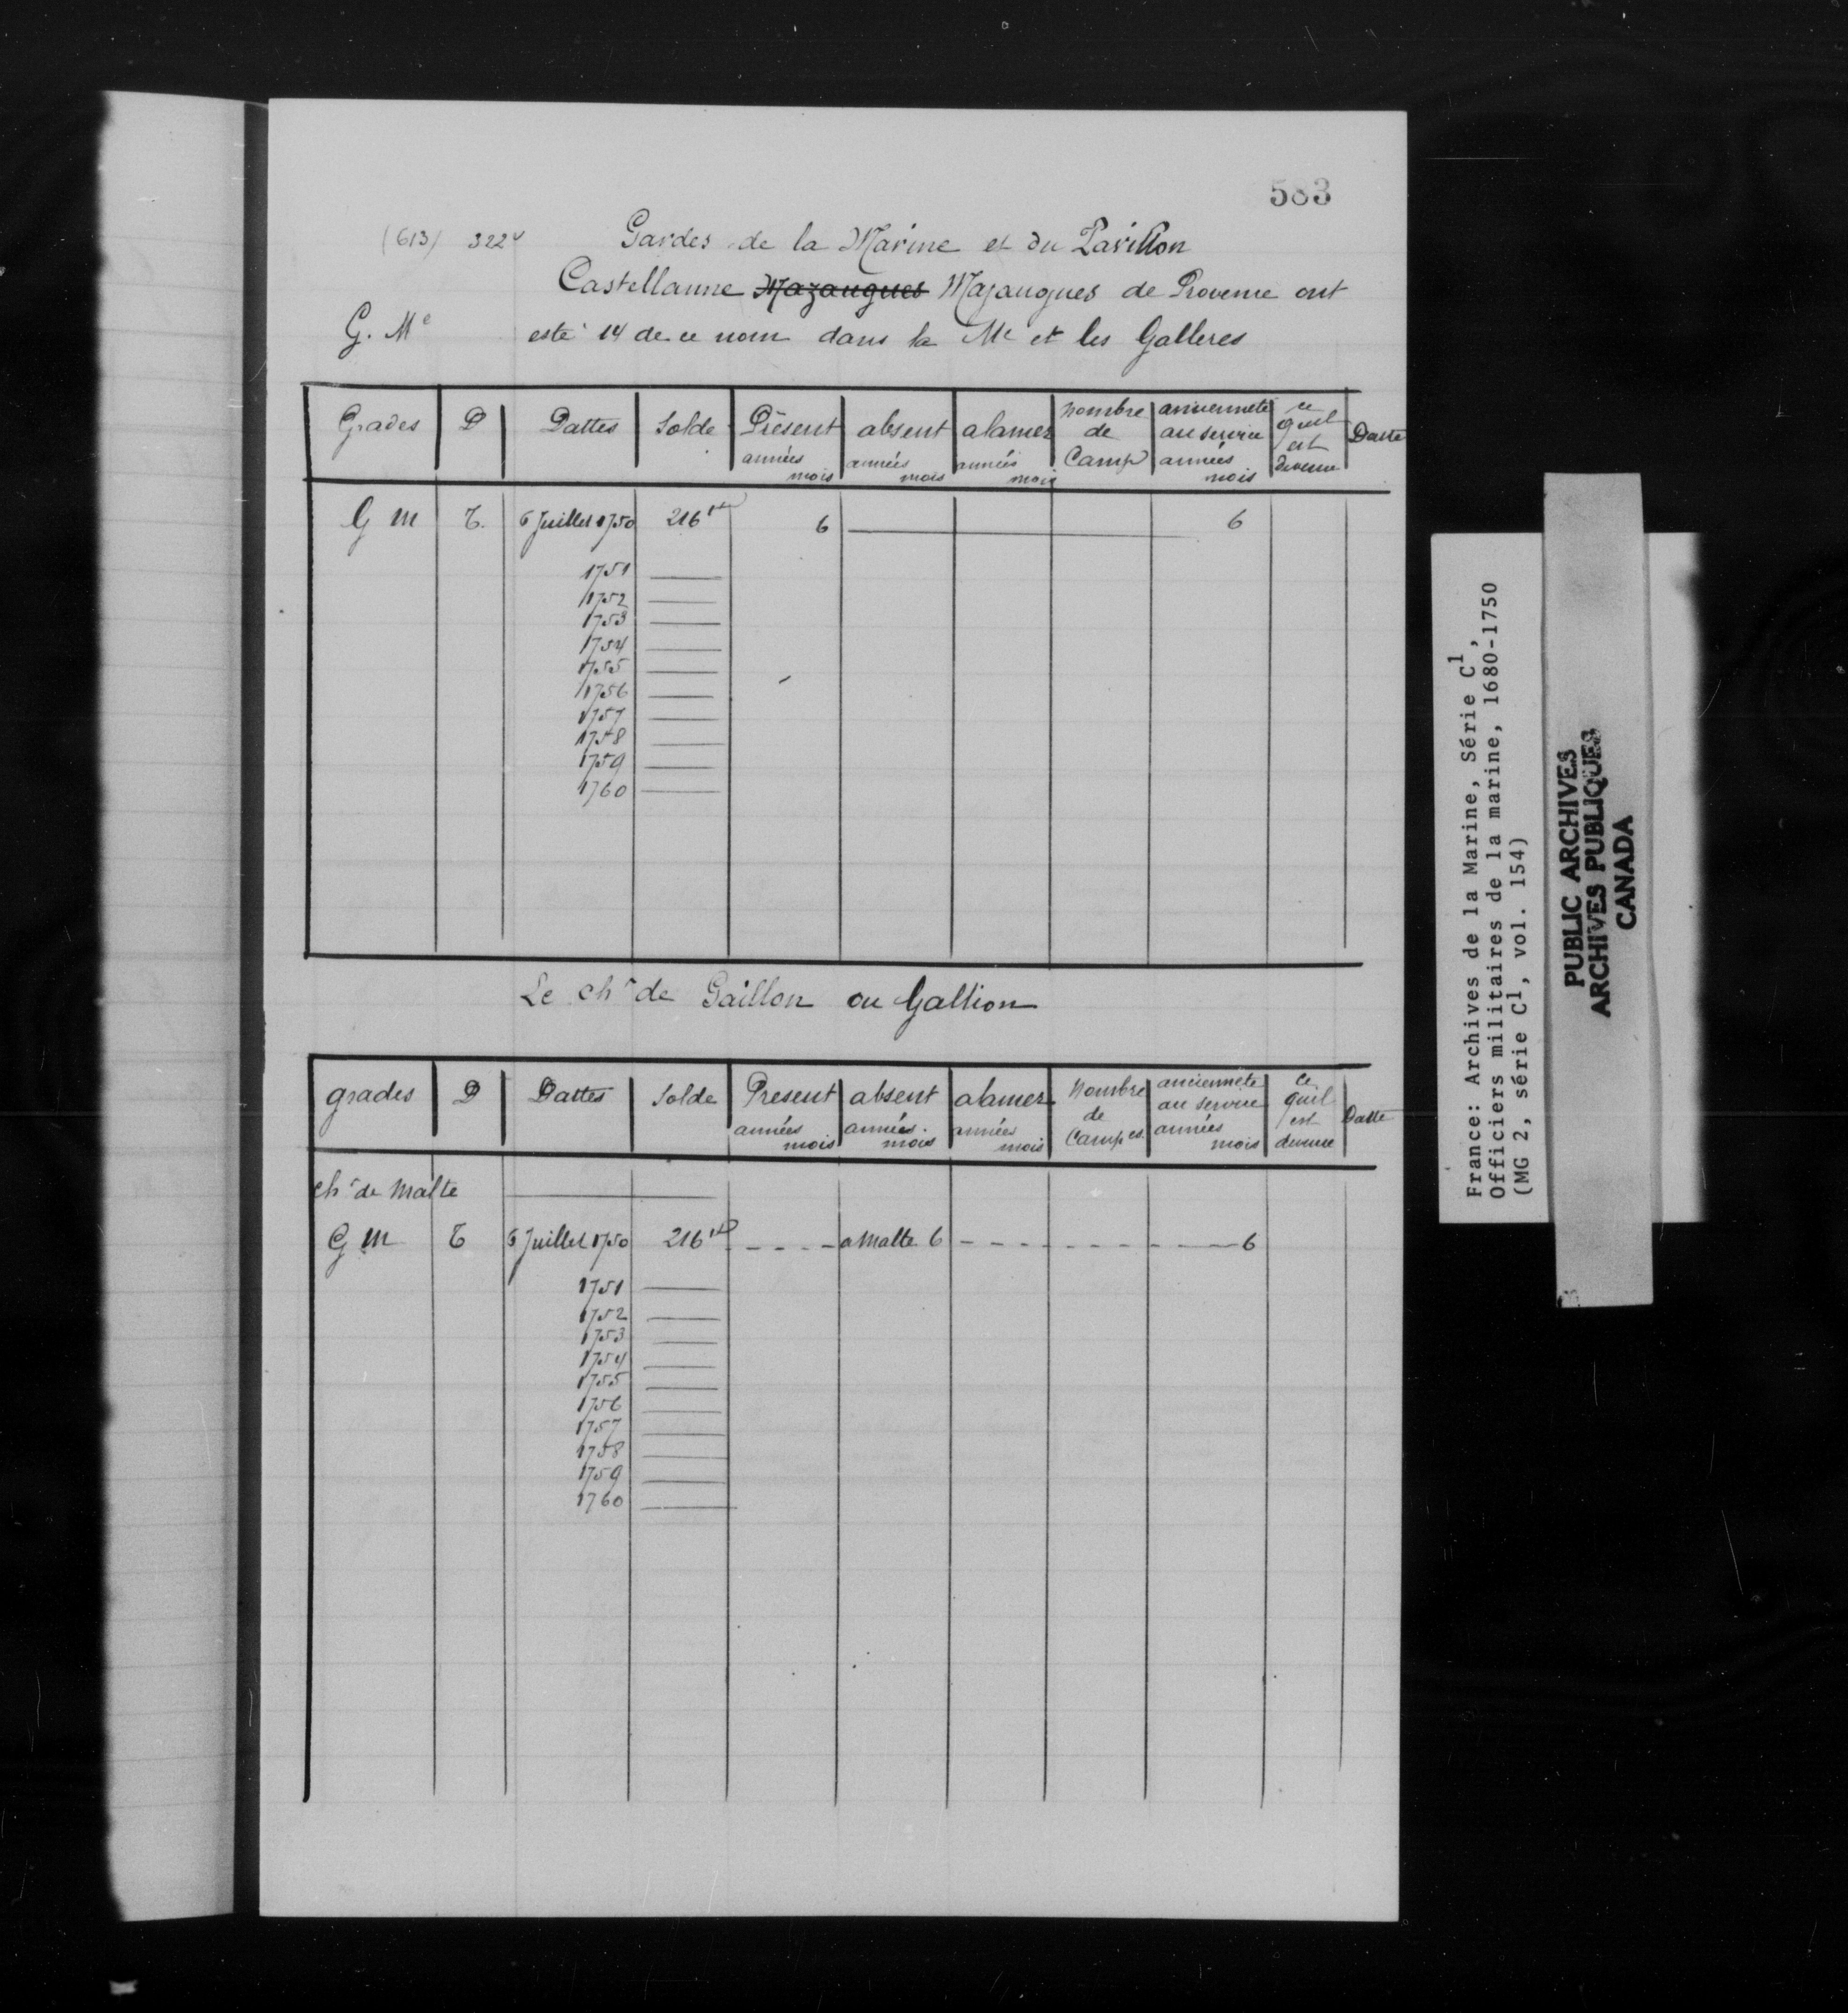 583
(613) 322v Gardes de la Marine et du Pavillon
Castellanne Mazaugues Majaugues de Provence ont
G. Me esté 14 de ce nom dans la Me et les Galleres
Grades D Dattes Solde Présent années mois absent années mois alamer années mois nombre de Camp ancienneté au service années mois ce quil est devenu Datte
G M T. 6 Juillet 1750 216tt 6 6
1751
1752
1753
1754
1755
1756
1757
1758
1759
1760
Le chr de Gaillon ou Gallion
grades D Dattes Solde Present années mois absent années mois alamer années mois Nombre de Campes ancienneté au service années mois Ce quil est devenu Datte
chr de Malte
G M T 6 Juillet 1750 216tt a Malte 6 6
1751
1752
1753
1754
1755
1756
1757
1758
1759
1760
France: Archives de la Marine, Série C1,
Officiers militaires de la marine, 1680-1750
(MG 2, série C1, vol. 154)
PUBLIC ARCHIVES
ARCHIVES PUBLIQUES
CANADA